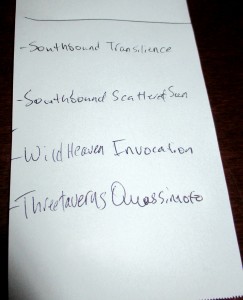 -Southbound Transilience
-Southbound Scatter of Sun
-Wild Heaven Invocation
-Threetaverns Quasimoto